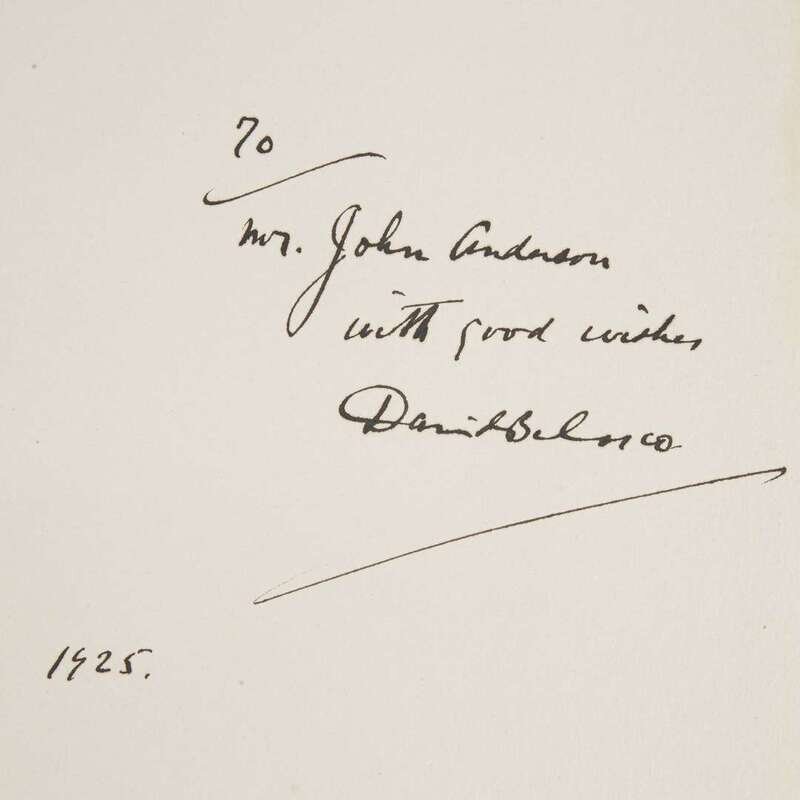 To
Mr. John Anderson
with good wishes
David Belasco
1925.